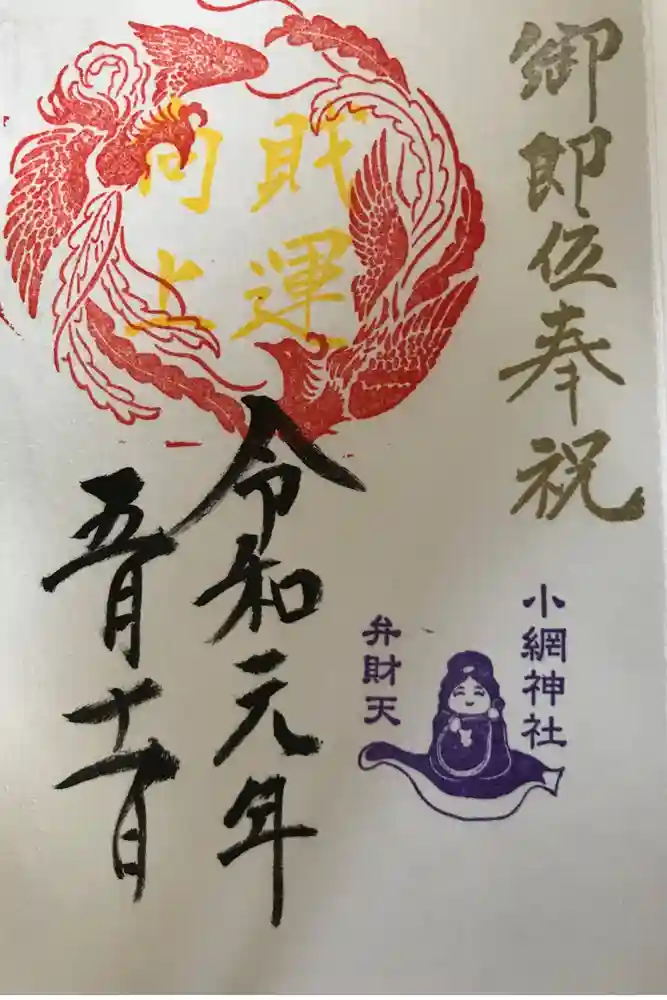 御即位奉祝
財運
向上
小網神社
弁財天
令和元年
五月十一日